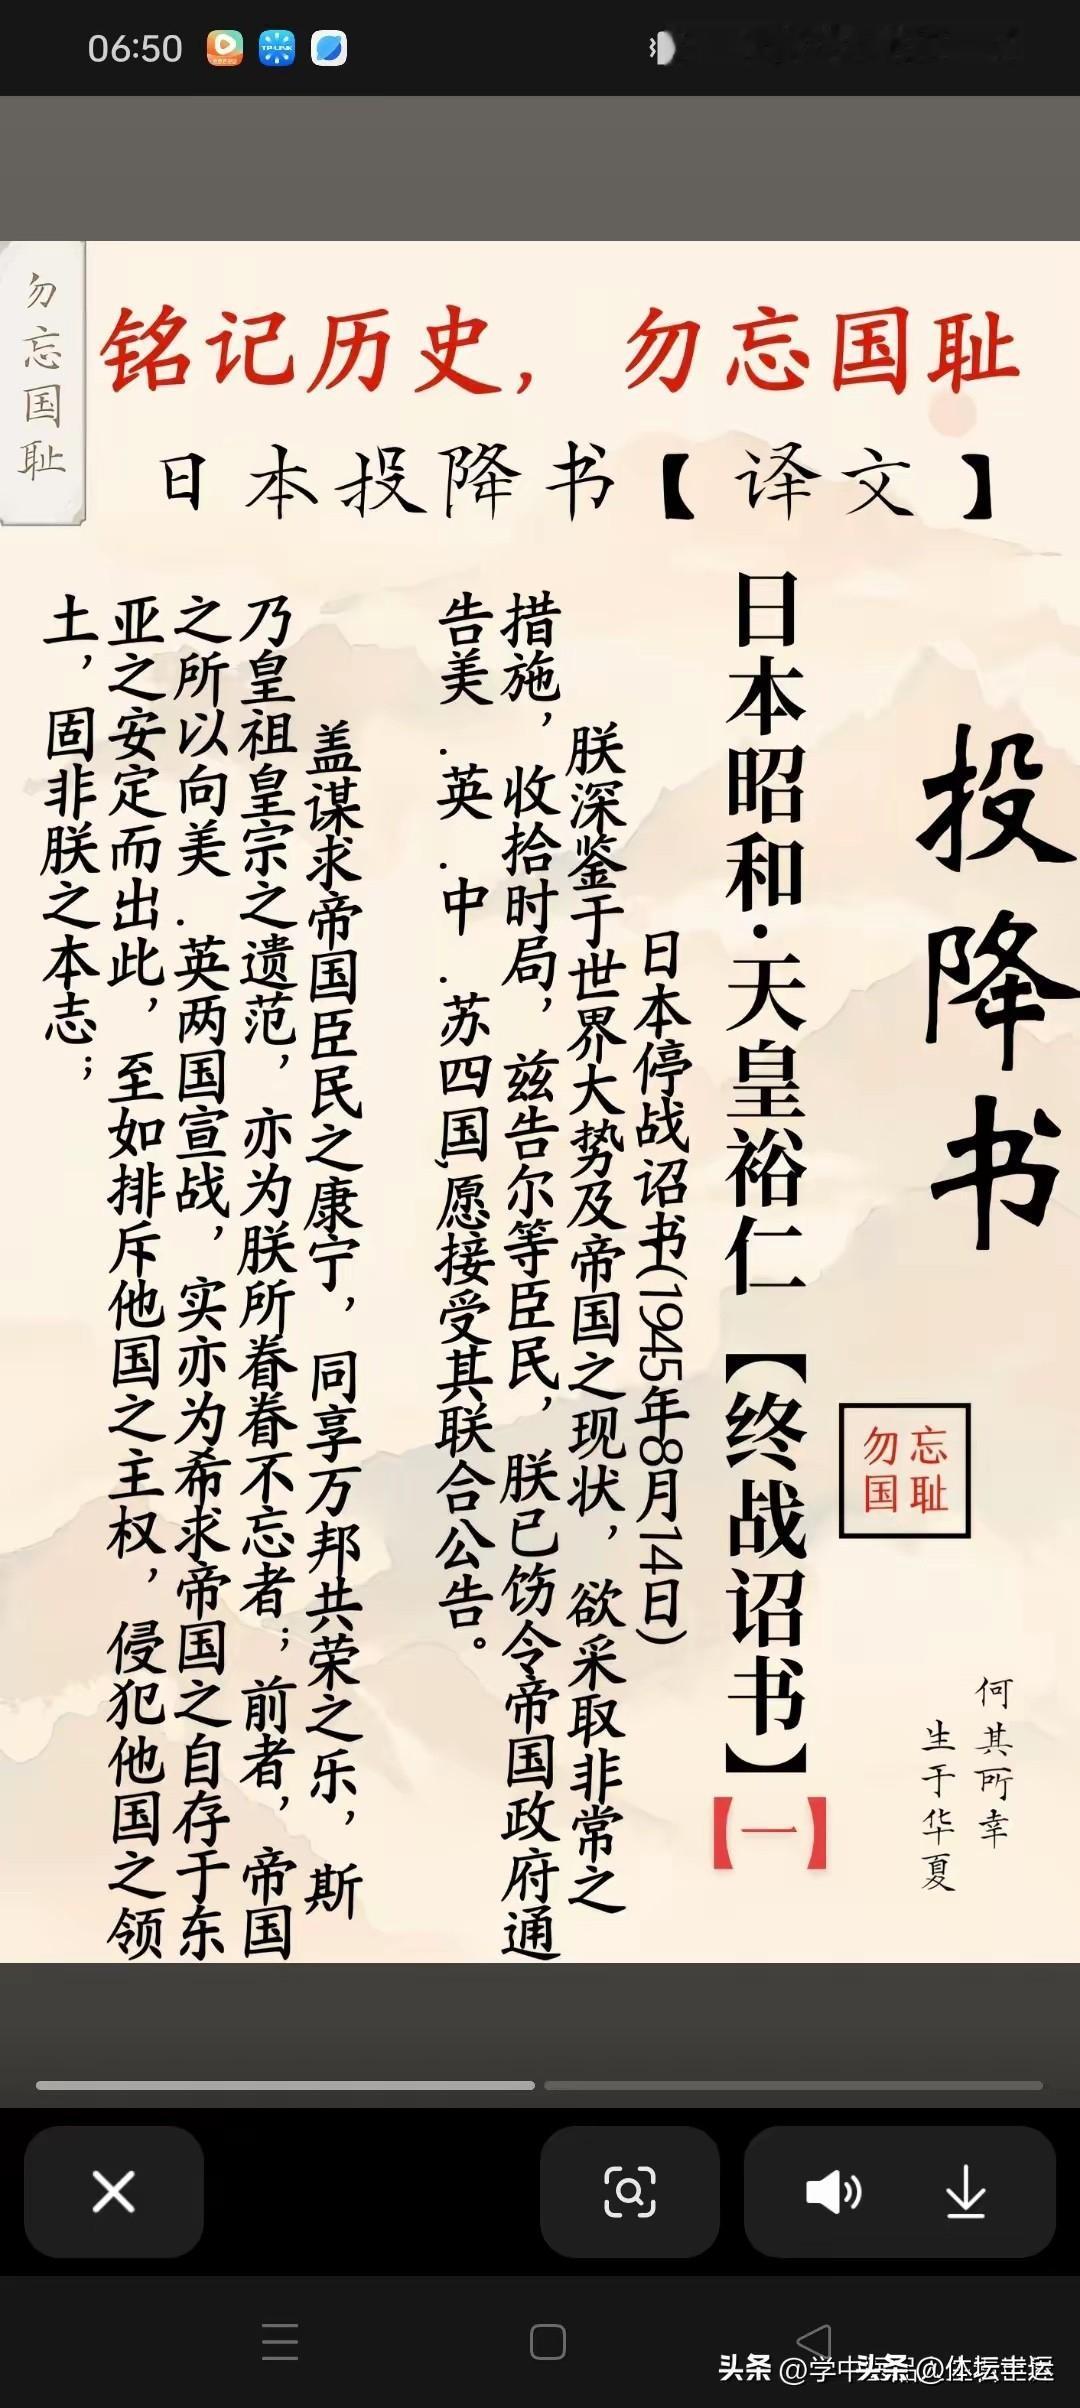 06:50
TP-LINK
勿忘国耻
铭记历史，勿忘国耻
日本投降书【译文】
投降书
勿忘
国耻
何其所幸
生于华夏
日本昭和·天皇裕仁【终战诏书】【一】
日本停战诏书(1945年8月14日)
朕深鉴于世界大势及帝国之现状，欲采取非常之
措施，收拾时局，兹告尔等臣民，朕已饬令帝国政府通
告美.英.中.苏四国,愿接受其联合公告。
盖谋求帝国臣民之康宁，同享万邦共荣之乐，斯
乃皇祖皇宗之遗范，亦为朕所眷眷不忘者；前者，帝国
之所以向美.英两国宣战，实亦为希求帝国之自存于东
亚之安定而出此，至如排斥他国之主权，侵犯他国之领
土，固非朕之本志；
头条 @学中
头条 @体坛幸运